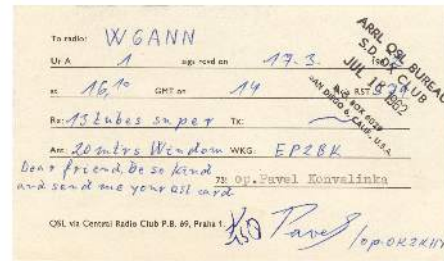 To radio: W6ANN
Ur A 1 sigs rcvd on 17.3.
at 16,10 GMT on 14 RST 579
Rx: 13 tubes super Tx:
Ant: 20 mtrs Windom WKG: EP2BK
Dear friend, be so kind
and send me your qsl card.
73! op. Pavel Konvalinka
QSL via Central Radio Club P.B. 69, Praha 1.
Pavel
/op. OK2KHY
ARRL QSL BUREAU
S.D. DX CLUB
JUL 18 1962
BOX 6029
SAN DIEGO 6, CALIF., U.S.A.